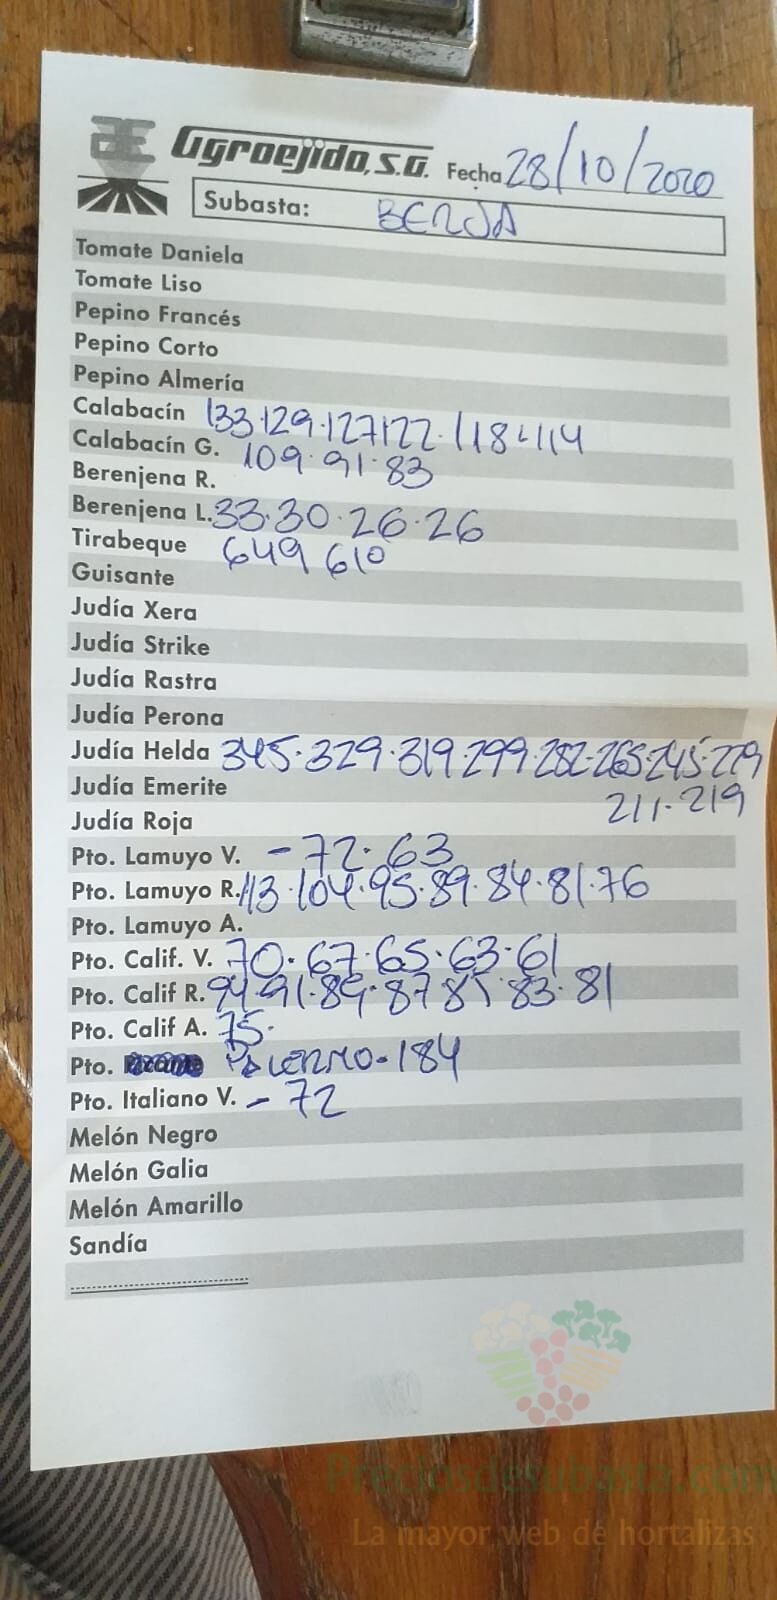 Agroejido, S.G. Fecha 28/10/2020
Subasta: BERJA
Tomate Daniela
Tomate Liso
Pepino Francés
Pepino Corto
Pepino Almería
Calabacín 133·129·127122·118·114
Calabacín G. 109·91·83
Berenjena R.
Berenjena L. 33·30·26·26
Tirabeque 649 610
Guisante
Judía Xera
Judía Strike
Judía Rastra
Judía Perona
Judía Helda 345·329·319·299·282·265·245·229
Judía Emerite 211·219
Judía Roja
Pto. Lamuyo V. -72·63
Pto. Lamuyo R. 113·104·95·89·84·81·76
Pto. Lamuyo A.
Pto. Calif. V. 70·67·65·63·61
Pto. Calif R. 94·91·89·87 85·83·81
Pto. Calif A. 75·
Pto. PALERMO-184
Pto. Italiano V. -72
Melón Negro
Melón Galia
Melón Amarillo
Sandía
Preciosdesubasta.com
La mayor web de hortalizas